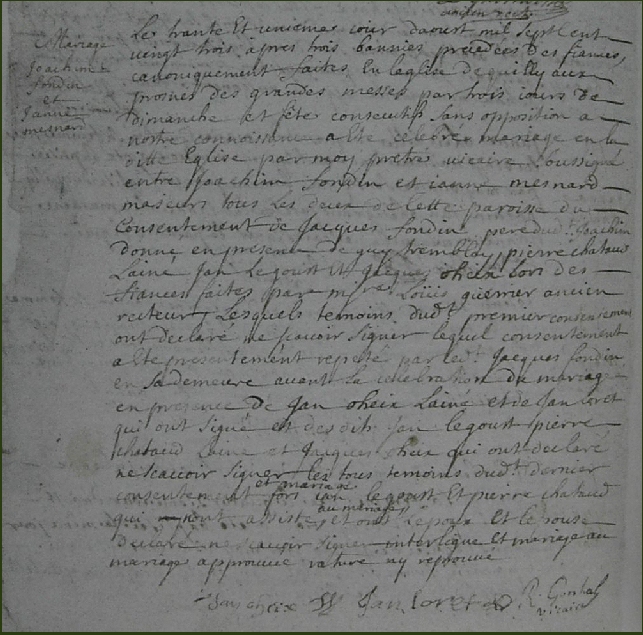 ancien recteur
Mariage
Joachim
fondin
et
Janne
mesnard
Le trante Et unieme iour daoust mil sept cent
vingt trois apres trois bannies precedees des fiances,
canoniquement faites En leglise de quilly aux
prosnes des grandes messes par trois iours de
dimanche et fête consecutifs sans opposition a
nostre connoissance a Ete celebré mariage en la
ditte Eglise par moy prêtre vicaire soussigné
entre Joachim fondin et ianne mesnard
maieurs tous les deux de cette paroisse du
Consentement de Jacques fondin pere dud. Joachim
donné en presence de guy tremblay, pierre chataud
Lainé Jan Legoust et Jacques oheix lors des
fiances faites par Louis guerrier ancien
recteur, Lesquels temoins dudt. premier consentement
ont declaré ne scavoir signer lequel consentement
a Ete presentement repeté par ledt. Jacques fondin
en sa demeure avant la celebration du mariage
en presence de Jan oheix Lainé et de Jan loret
qui ont signé et des dits Jan legoust pierre
chataud Lainé et Jacques oheix qui ont declaré
ne scavoir signer les tous temoins dudt. dernier
et mariage
consentement fors legoust Et pierre chataud
au mariage
qui nont assisté et ont Lepoux Et Lepouse
declaré ne scavoir signer interligne Et mariage au
mariage approuvé rature ny reprouvé
Jan oheix Jan loret
R. Gouhal
vicaire